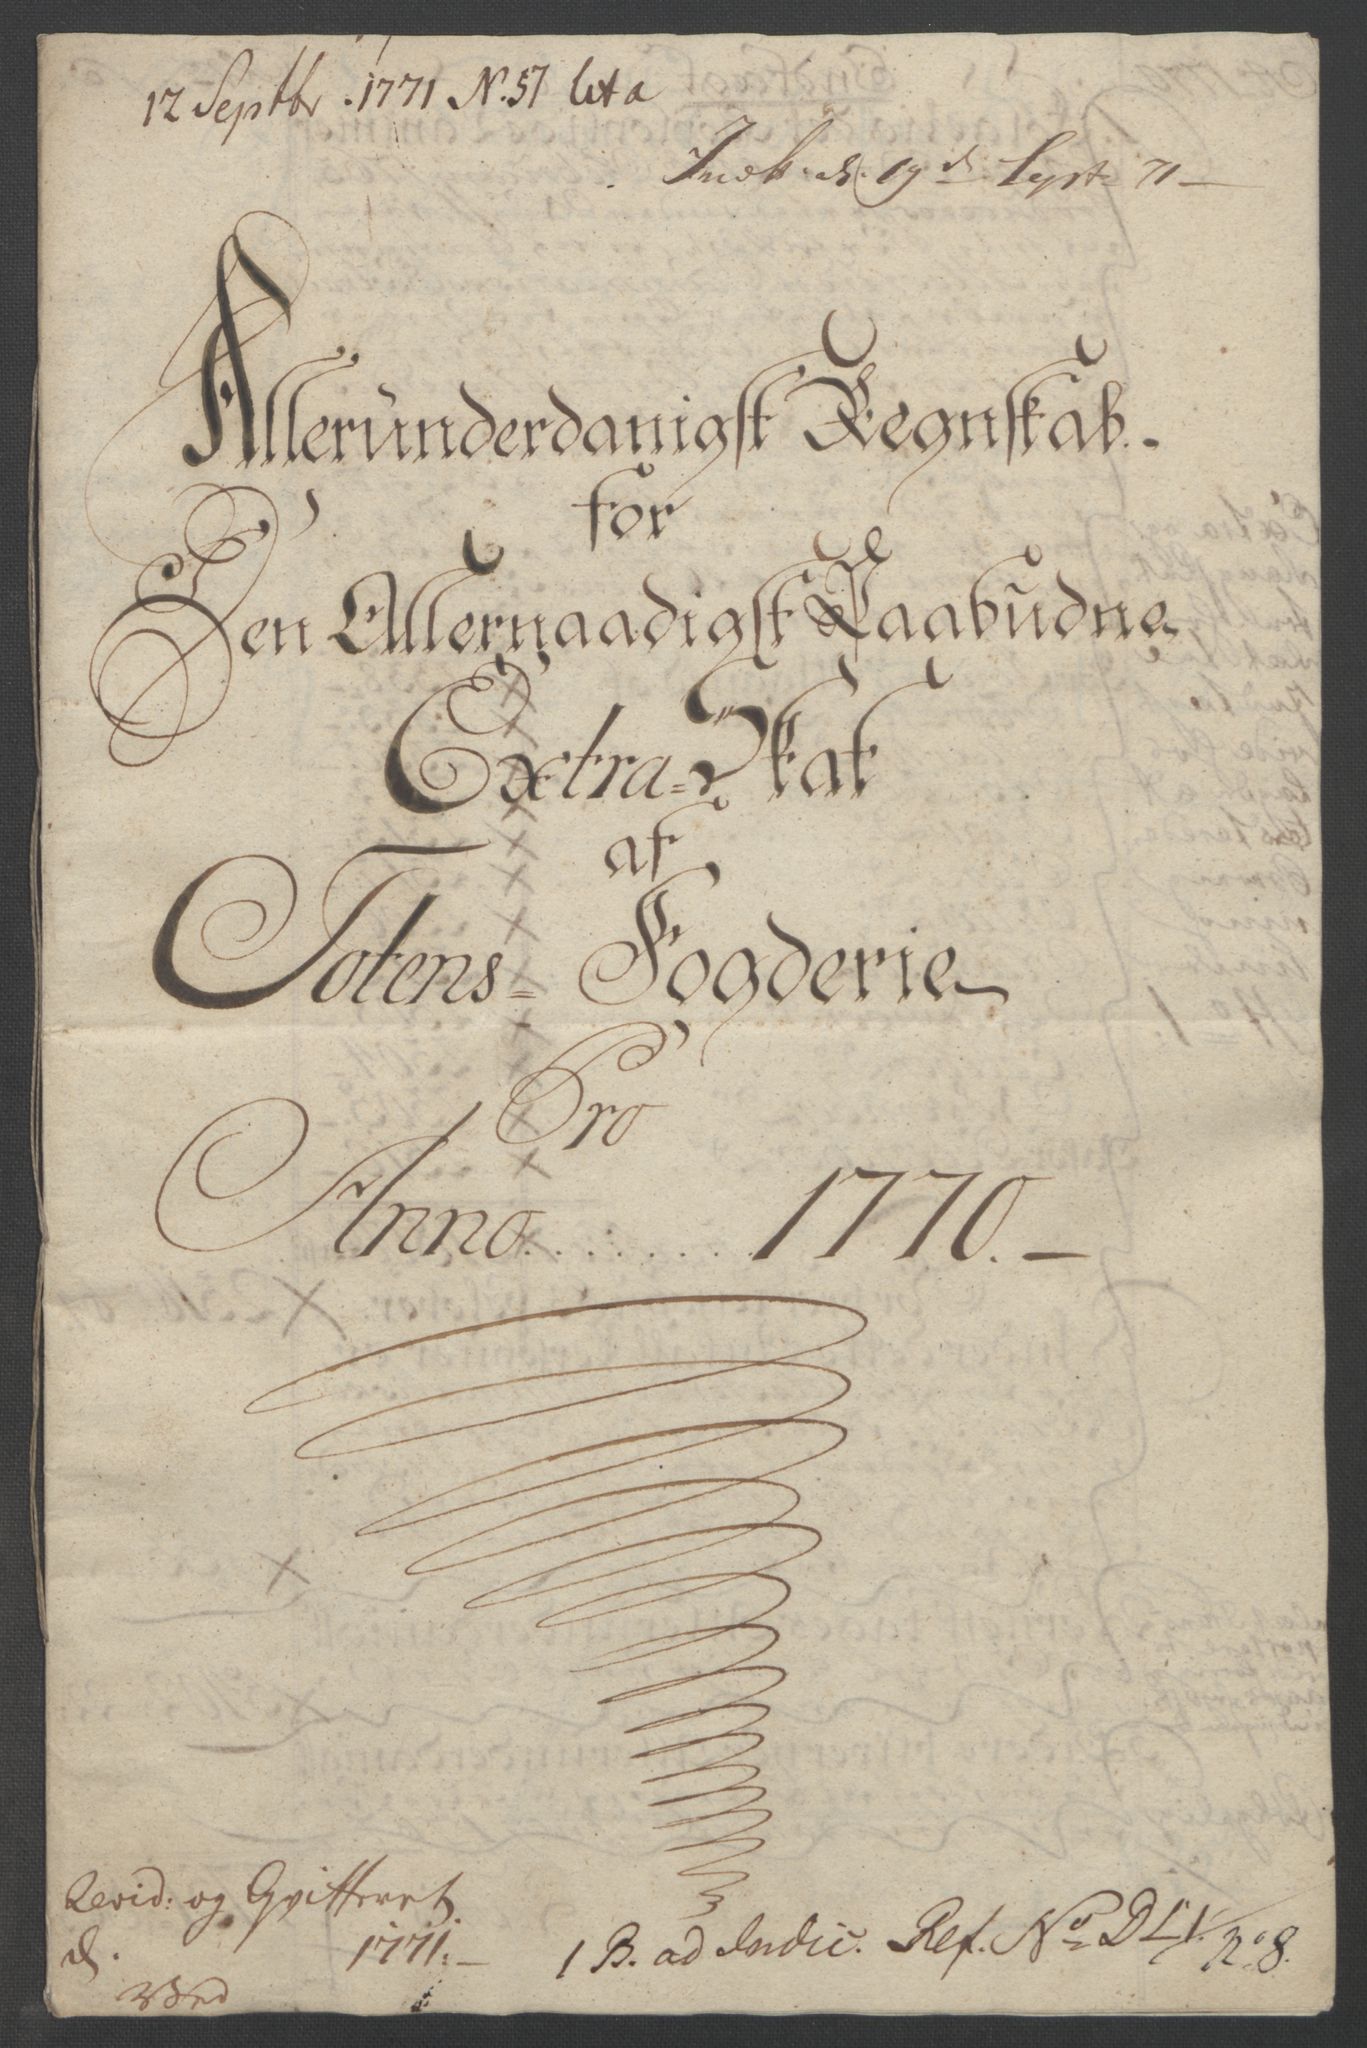 12 Septbr. 1771 N. 57 lit a
d. 19d Sept 71
Allerunderdanigst Regnskab.
for
Den Allernaadigst Paabudne
Extra=Skat
af
Totens= Fogderie
Pro
Anno ........ 1770.
Revid: og Qvitteret
d. 1771.
1 B. ad Indic. Ref. No DLV. No 8.